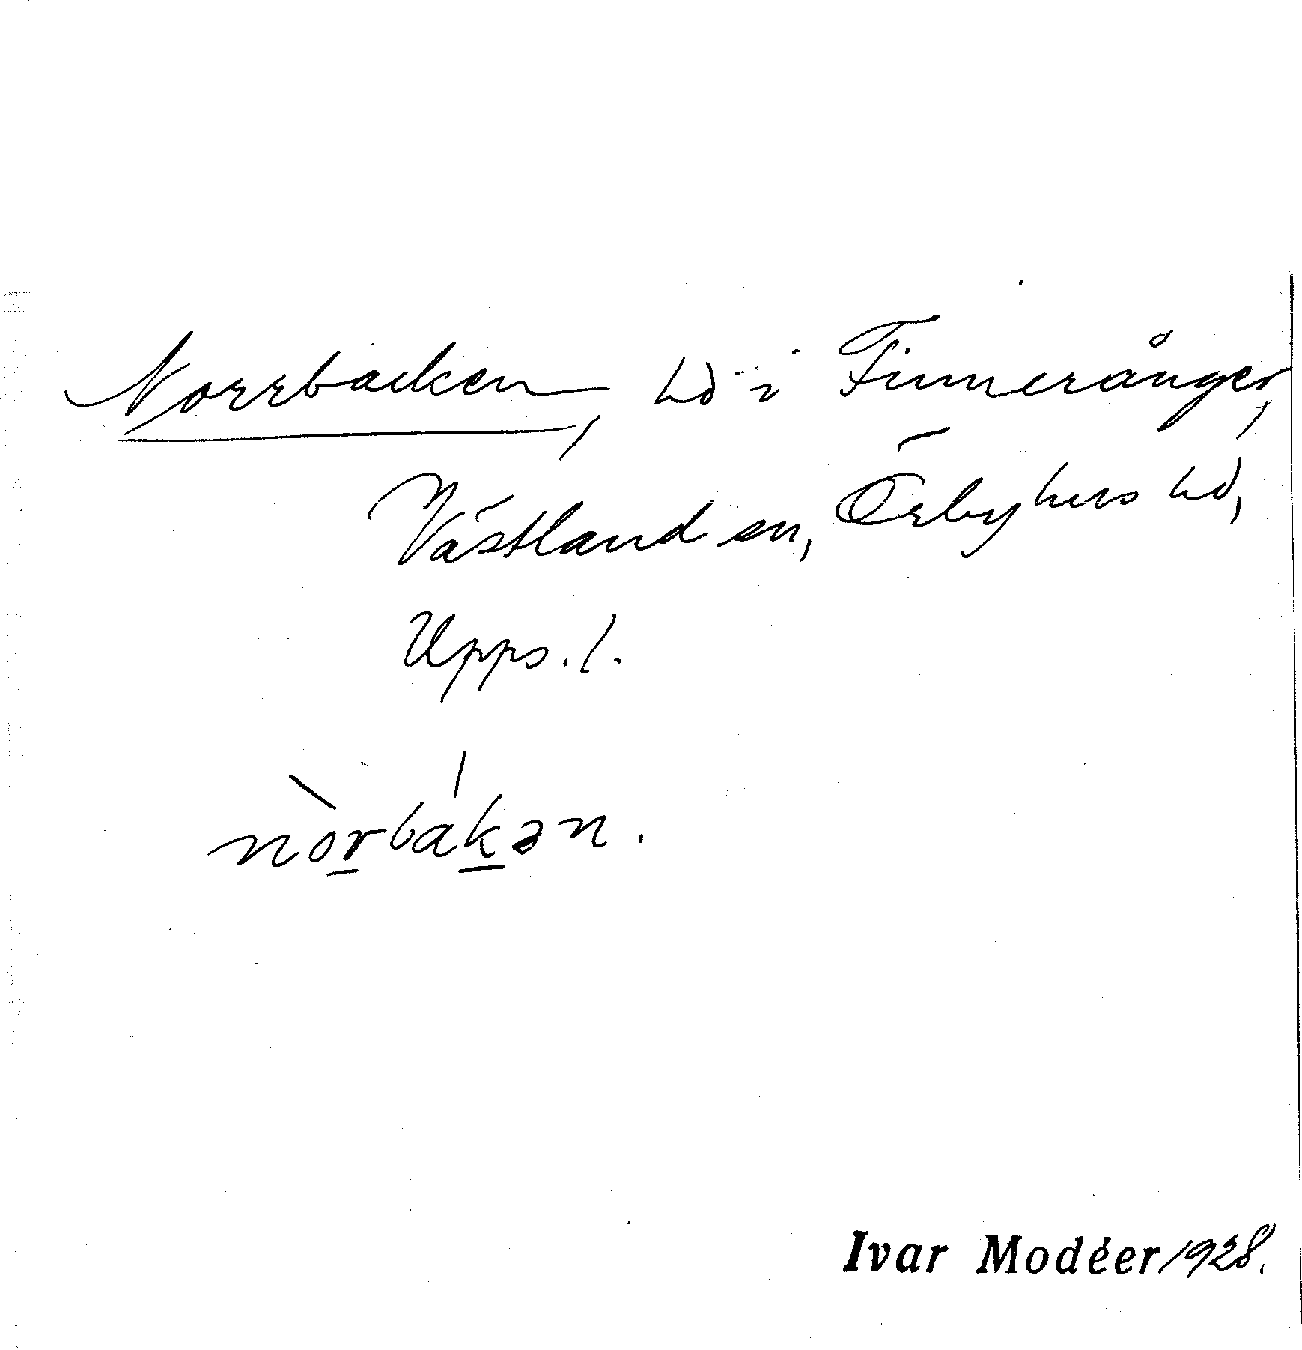 Norrbacken, hd i Finneränger,
Västland sn, Örbyhus hd,
Upps. l.
nòrbákən.
Ivar Modéer 1928.